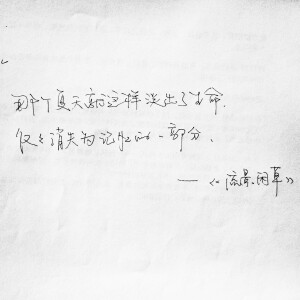 那个夏天就这样淡出了生命,
仅仅消失为记忆的一部分、
—《流景闲草》